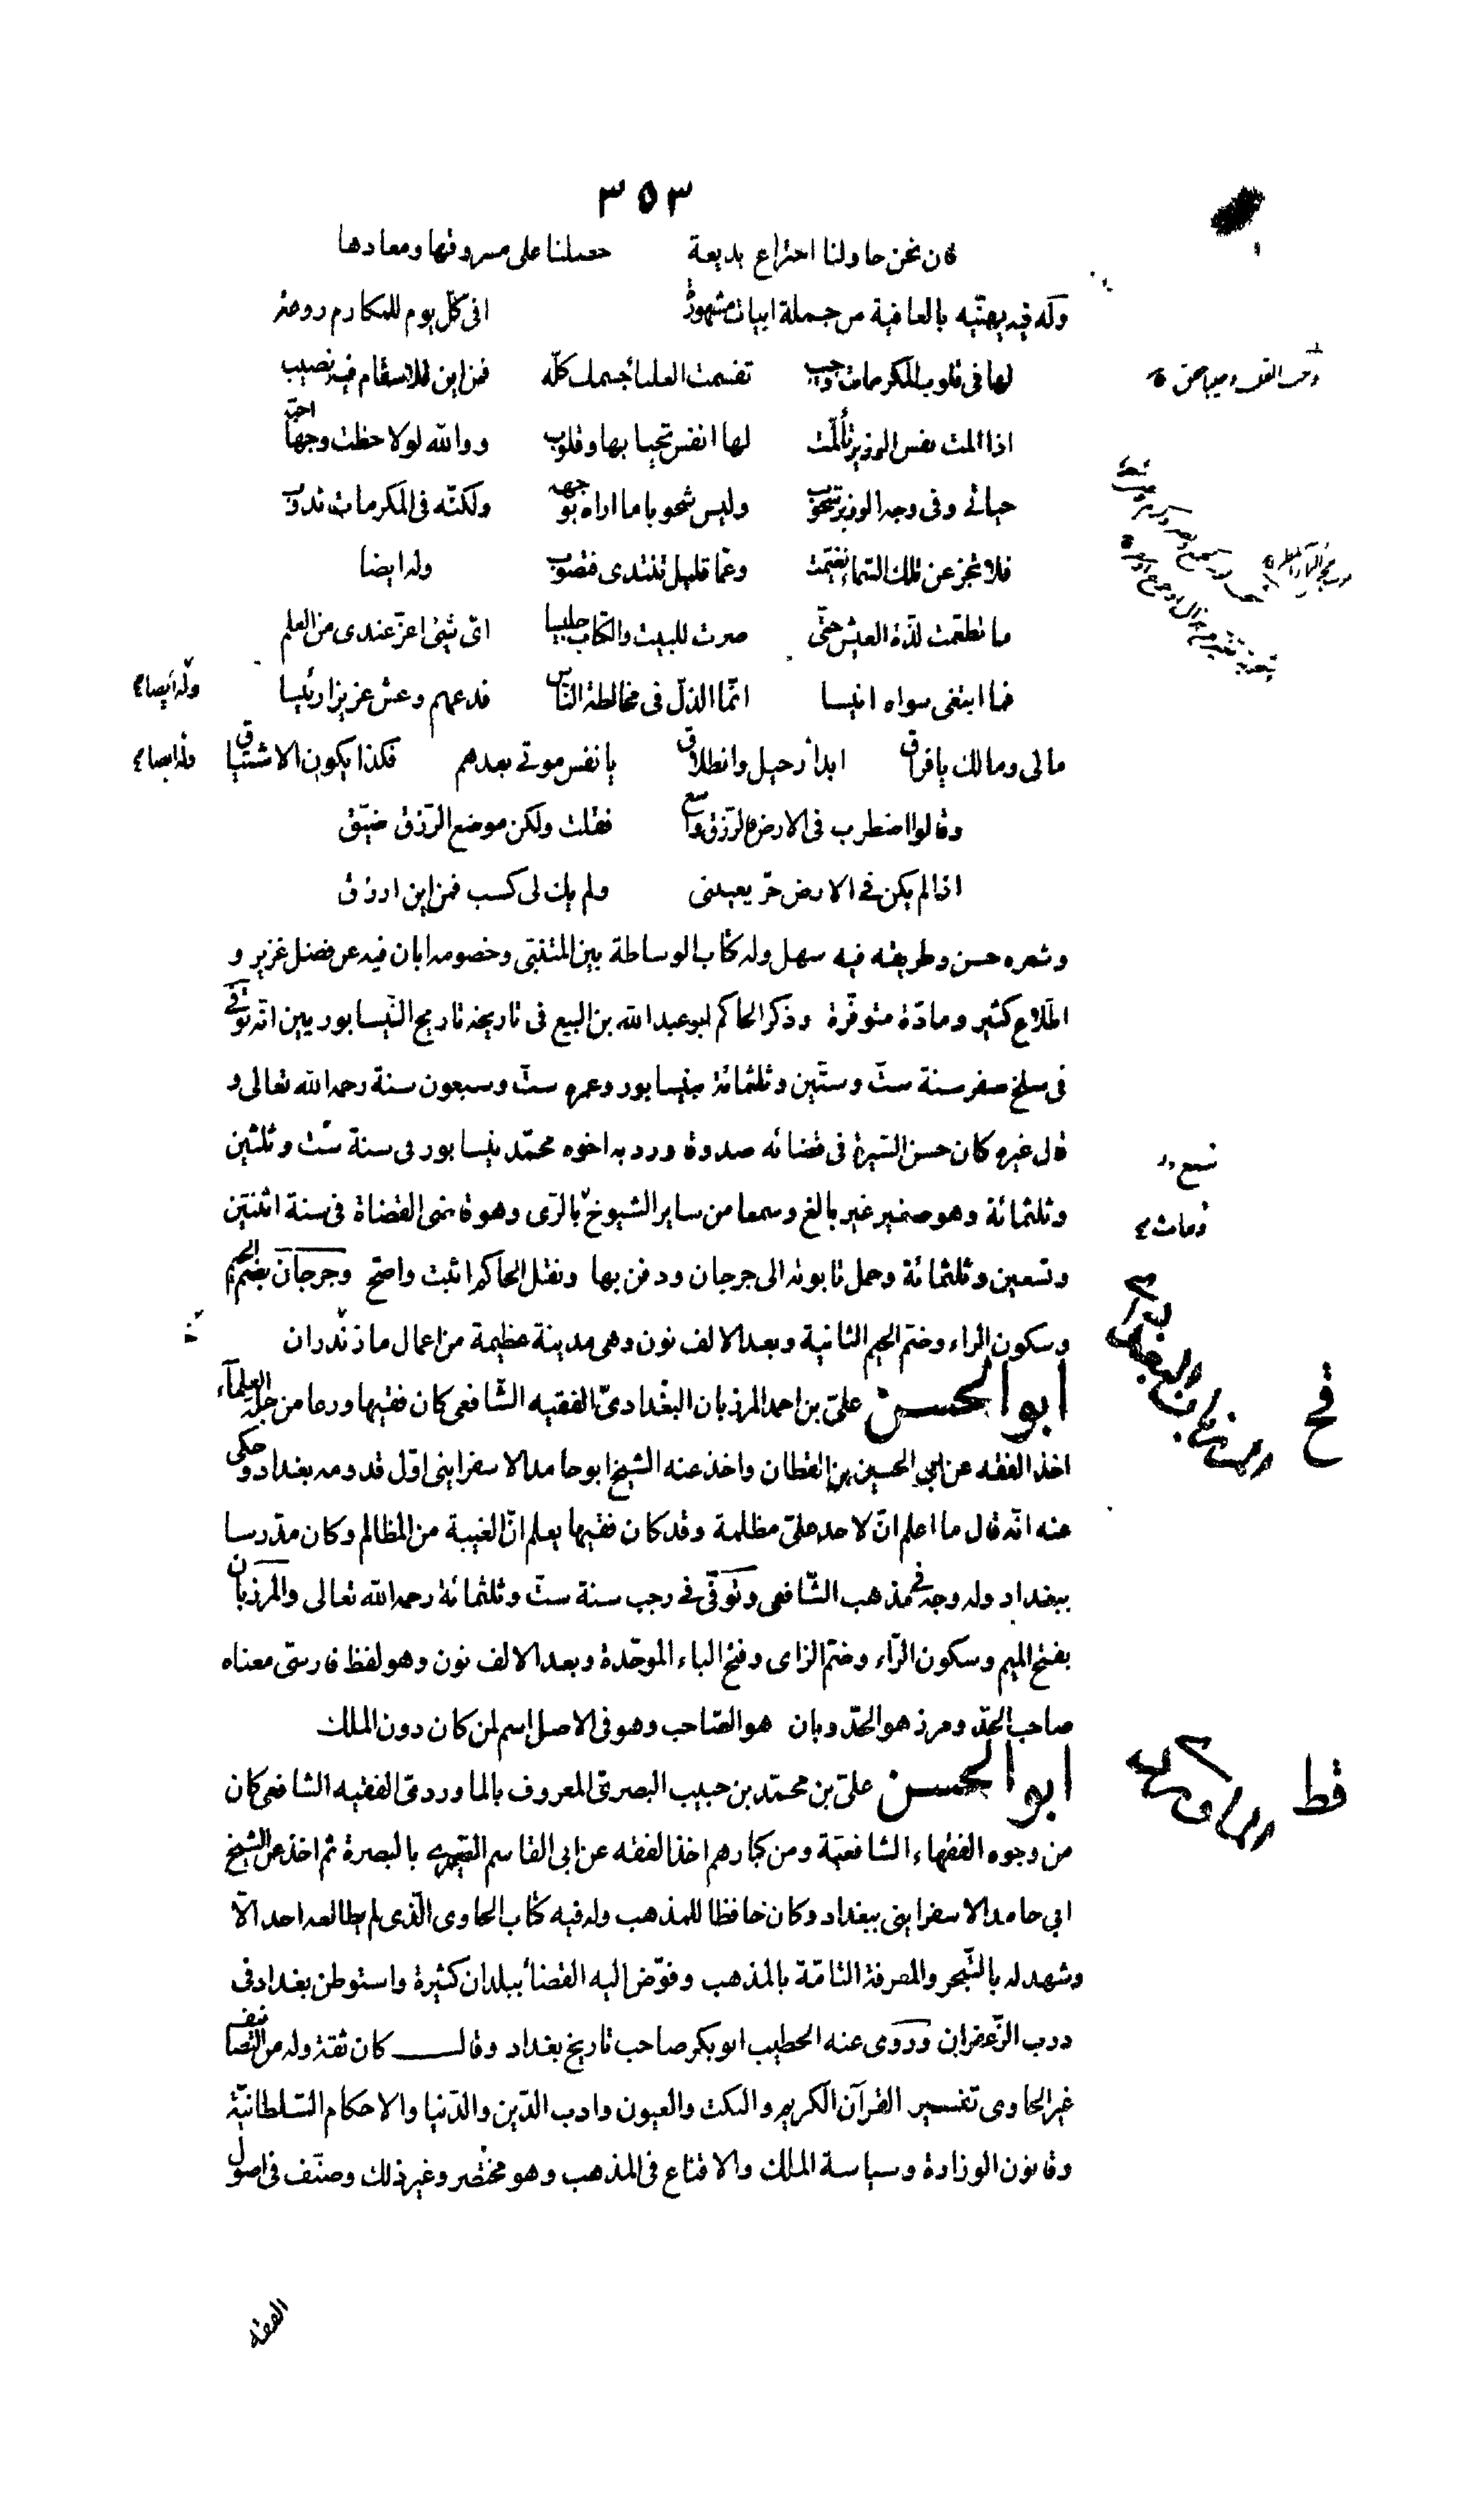 ٣٥٣
فان نحن حاولنا اختراع بديعة حصلنا على مسروقها ومعادها
وله فيه يهنّيه بالعافية من جملة ابيات مشهورة افى كلّ يوم للمكارم روعة
لها فى قلوب المكرمات وجيب تقسمت العليا جسمك كلّه فمن اين للاسقام فيه نصيب
اذا المت نفس الوزير تألّمت لها انفس تحيا بها وقلوب ووالله لولاحظت وجها احبّه
حياتى وفى وجه الوزير شحوب وليس شحوبا ما اراه بوجهه ولكنّه فى المكرمات ندوب
فلا تجزعن تلك السّماء تغيّمت وعمّا قليل تبتدى فتصوب وله ايضا
ما تطعّمت لذّة العيش حتّى صرت للبيت والكتاب جليسا اىّ شيئ اعزّ عندى من العلم
فما ابتغى سواه انيسا انّما الذلّ فى مخالطة النّاس فدعهم وعش عزيزا رئيسا
وله ايضا
مالى ومالك يا فراق ابدا رحيل وانطلاق يا نفس موتى بعدهم فكذا يكون الاشتياق
وله ايضا
وقالوا اضطرب فى الارض فالرّزق واسع فقلت ولكن موضع الرّزق ضيّق
اذا لم يكن فى الارض حرّ يعيننى ولم يك لى كسب فمن اين ارزق
وشعره حسن وطريقه فيه سهل وله كتاب الوساطة بين المتنبّى وخصومه ابان فيه عن فضل غزير و
اطّلاع كثير ومادّة متوفّرة وذكر الحاكم ابو عبد الله بن البيع فى تاريخه تاريخ النّيسابوريين انّه توفّى
فى سلخ صفر سنة ستّ وستّين وثلثمائة بنيسابور وعمره ستّ وسبعون سنة رحمه الله تعالى و
قال غيره كان حسن السّيرة فى قضائه صدوق ورد به اخوه محمّد نيسابور فى سنة ستّ وثلثين
وثلثمائة وهو صغير غير بالغ وسمعا من ساير الشيوخ بالرّى وهو قاضى القضاة فى سنة اثنتين
وتسعين وثلثمائة وحمل تابوته الى جرجان ودفن بها ونقل الحاكم اثبت واصحّ وجرجان بضمّ الجيم
وسكون الراء وضمّ الجيم الثانية وبعد الالف نون وهى مدينة عظيمة من اعمال مازندران
قح
ابو الحسن علىّ بن احمد المرزبان البغدادىّ الفقيه الشّافعى كان فقيها ورعا من جلّة العلماء
اخذ الفقه عن ابى الحسين بن القطان واخذ عنه الشيخ ابو حامد الاسفراينى اوّل قدومه بغداد وحكى
عنه انّه قال ما اعلم انّ لاحد علىّ مظلمة وقد كان فقيها يعلم انّ الغيبة من المظالم وكان مدّرسا
ببغداد وله وجه فى مذهب الشّافعى وتوفّى فى رجب سنة ستّ وثلثمائة رحمه الله تعالى والمرزبان
بفتح الميم وسكون الرّاء وضمّ الزاى وفتح الباء الموحّدة وبعد الالف نون وهو لفظ فارسىّ معناه
صاحب الحدّ ومرز هو الحدّ وبان هو الصّاحب وهو فى الاصل اسم لمن كان دون الملك
قط الماوردى
ابو الحسن علىّ بن محمّد بن حبيب البصرىّ المعروف بالماوردىّ الفقيه الشافعى كان
من وجوه الفقهاء الشافعيّة ومن كبارهم اخذ الفقه عن ابى القاسم الصّيمرى بالبصرة ثم اخذ عن الشيخ
ابى حامد الاسفراينى ببغداد وكان حافظا للمذهب وله فيه كتاب الحاوى الّذى لم يطالعه احد الّا
وشهد له بالتّبحر والمعرفة التامّة بالمذهب وفوّض اليه القضأ ببلدان كثيرة واستوطن بغداد فى
درب الزّعفران وروى عنه الخطيب ابو بكر صاحب تاريخ بغداد وقال كان ثقة وله من التّصانيف
غير الحاوى تفسير القرآن الكريم والنكت والعيون وادب الدّين والدّنيا والاحكام السّلطانيّة
وقانون الوزارة وسياسة الملك والاقناع فى المذهب وهو مختصر وغير ذلك وصنّف فى اصول
الفقه